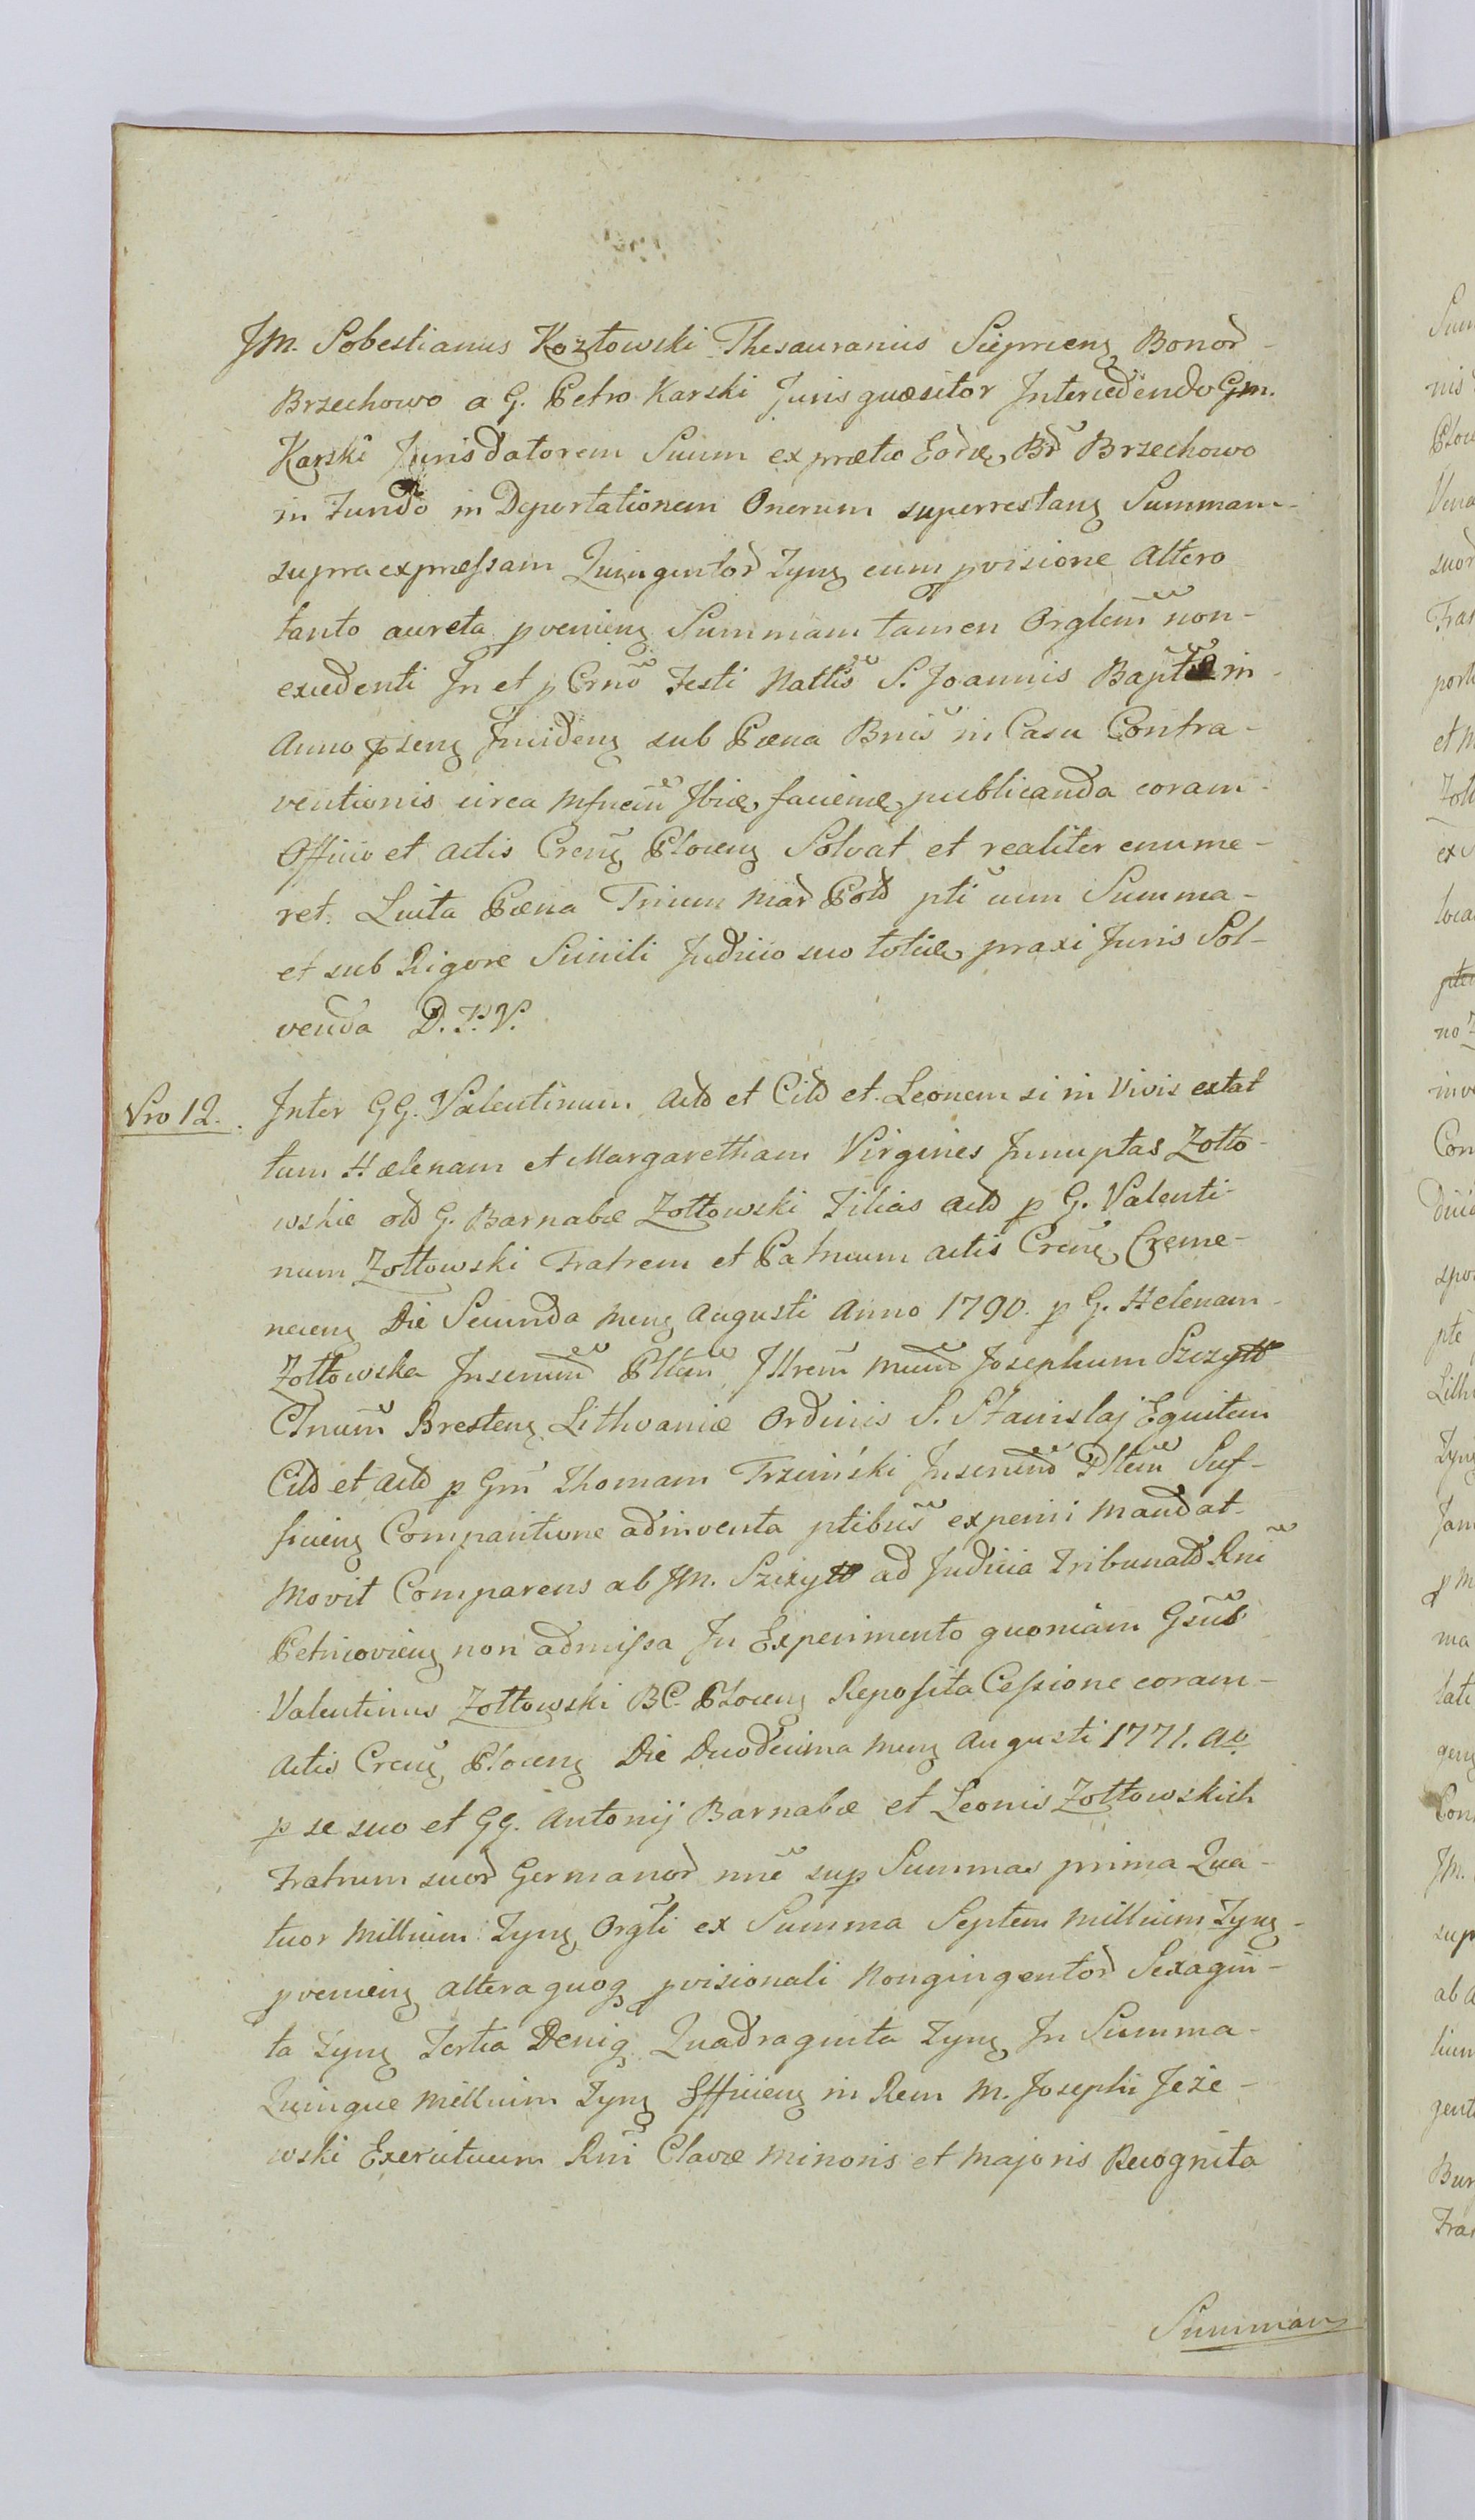 JM. Sobestianus Kozłowski Thesaurarius Sieprcenς Bonorđ
Brzechowo a G. Petro Karski Juris quæsitor Intercedendo Gm.
Karski Jurisdatorem Suum ex prætio Eorđę Bđ Brzechowo
in Fundo in Deportationem Onerum superrestanς Summam-
supra expræssam Quingentorđ Zynς cum pvisione Altero
tanto aucta pvenienς Summam tamen Orgłem non-
excedenti In et p Crnõ Festi Nattis S. Joannis Baptæ in
Anno pżenς Incidenς sub Pæna Bnis in Casu Contra-
ventionis circa Mfnem Ibię faciemę publicanda coram-
Officio et Actis Crenς Plocenς Solvat et realiter enume-
ret. Luita Pæna Trium Mar Pold pti cum Summa-
et sub Rigore Simili Judicio suo totię praxi Juris Sol-
venda D. P. V.
Nro 12. Inter GG. Valentinum Actđ et Citđ et Leonem si in Vivis extat
tum Hælenam et Margaretham Virgines Innuptas Zołto-
wskie olđ G. Barnabæ Zołtowski Filias Actđ p G. Valenti-
num Zołtowski Fratrem et Patruum Actis Crenς Creme-
necenς Die Secunda Menς Augusti Anno 1790. p G. Helenam-
Zołtowska Inserum Pltem Jllrem Mcum Josephum Szczytt
Ctnum Brestenς Lithvaniæ Ordinis S. Stanislaj Equitem
Citđ et Actđ p Gm Thomam Trzciński Inserum Pltem Suf-
ficienς Comparitione adinventa ptibus experiri Mandat-
Movit Comparens ab JM. Szczytt ad Judicia Tribunalđ Rni
Petricoviens non admissa In Experimento quoniam Gsus
Valentinus Zołtowski BC. Plocenς Reposita Cessione coram-
Actis Crenς Plocenς Die Duodecima Menς Augusti 1771. Ao
p se suo et GG. Antonij Barnabæ et Leonis Zołtowskich
Fratrum suorđ Germanorđ nne sup Summas prima Qua-
tuor Millium Zynς Orgli ex Summa Septem Millium Zynς-
pvenienς altera quoq pvisionali Nongingentorđ Sexagin-
ta Zynς Tertia Deniq Quadraginta Zynς In Summa-
Quinque Millium Zynς Efficienς in Rem M. Josephi Jeże-
wski Exercituum Rni Clavæ Minoris et Majoris Recognita
Summam